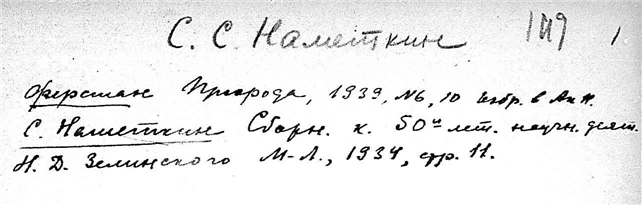 С. С. Наметкин 149 1
Ферсман Природа, 1939, №6, 10 избр. в Ак Н.
С. Наметкин Сборн. к. 50и лет. научн. деят.
Н. Д. Зелинского М-Л., 1934, стр. 11.